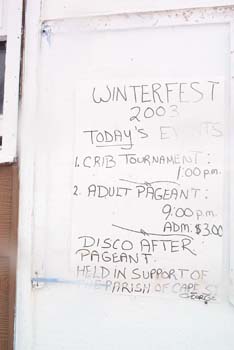 WINTERFEST
2003
TODAY'S EVENTS
1. CRIB TOURNAMENT:
1:00 p.m.
2. ADULT PAGEANT:
9:00 p.m.
ADM: $3.00
DISCO AFTER
PAGEANT.
HELD IN SUPPORT OF
THE PARISH OF CAPE ST
GEORGE